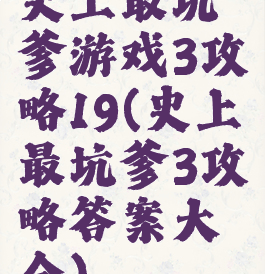 史上最坑
爹游戏3攻
略19(史上
最坑爹3攻
略答案大
全)